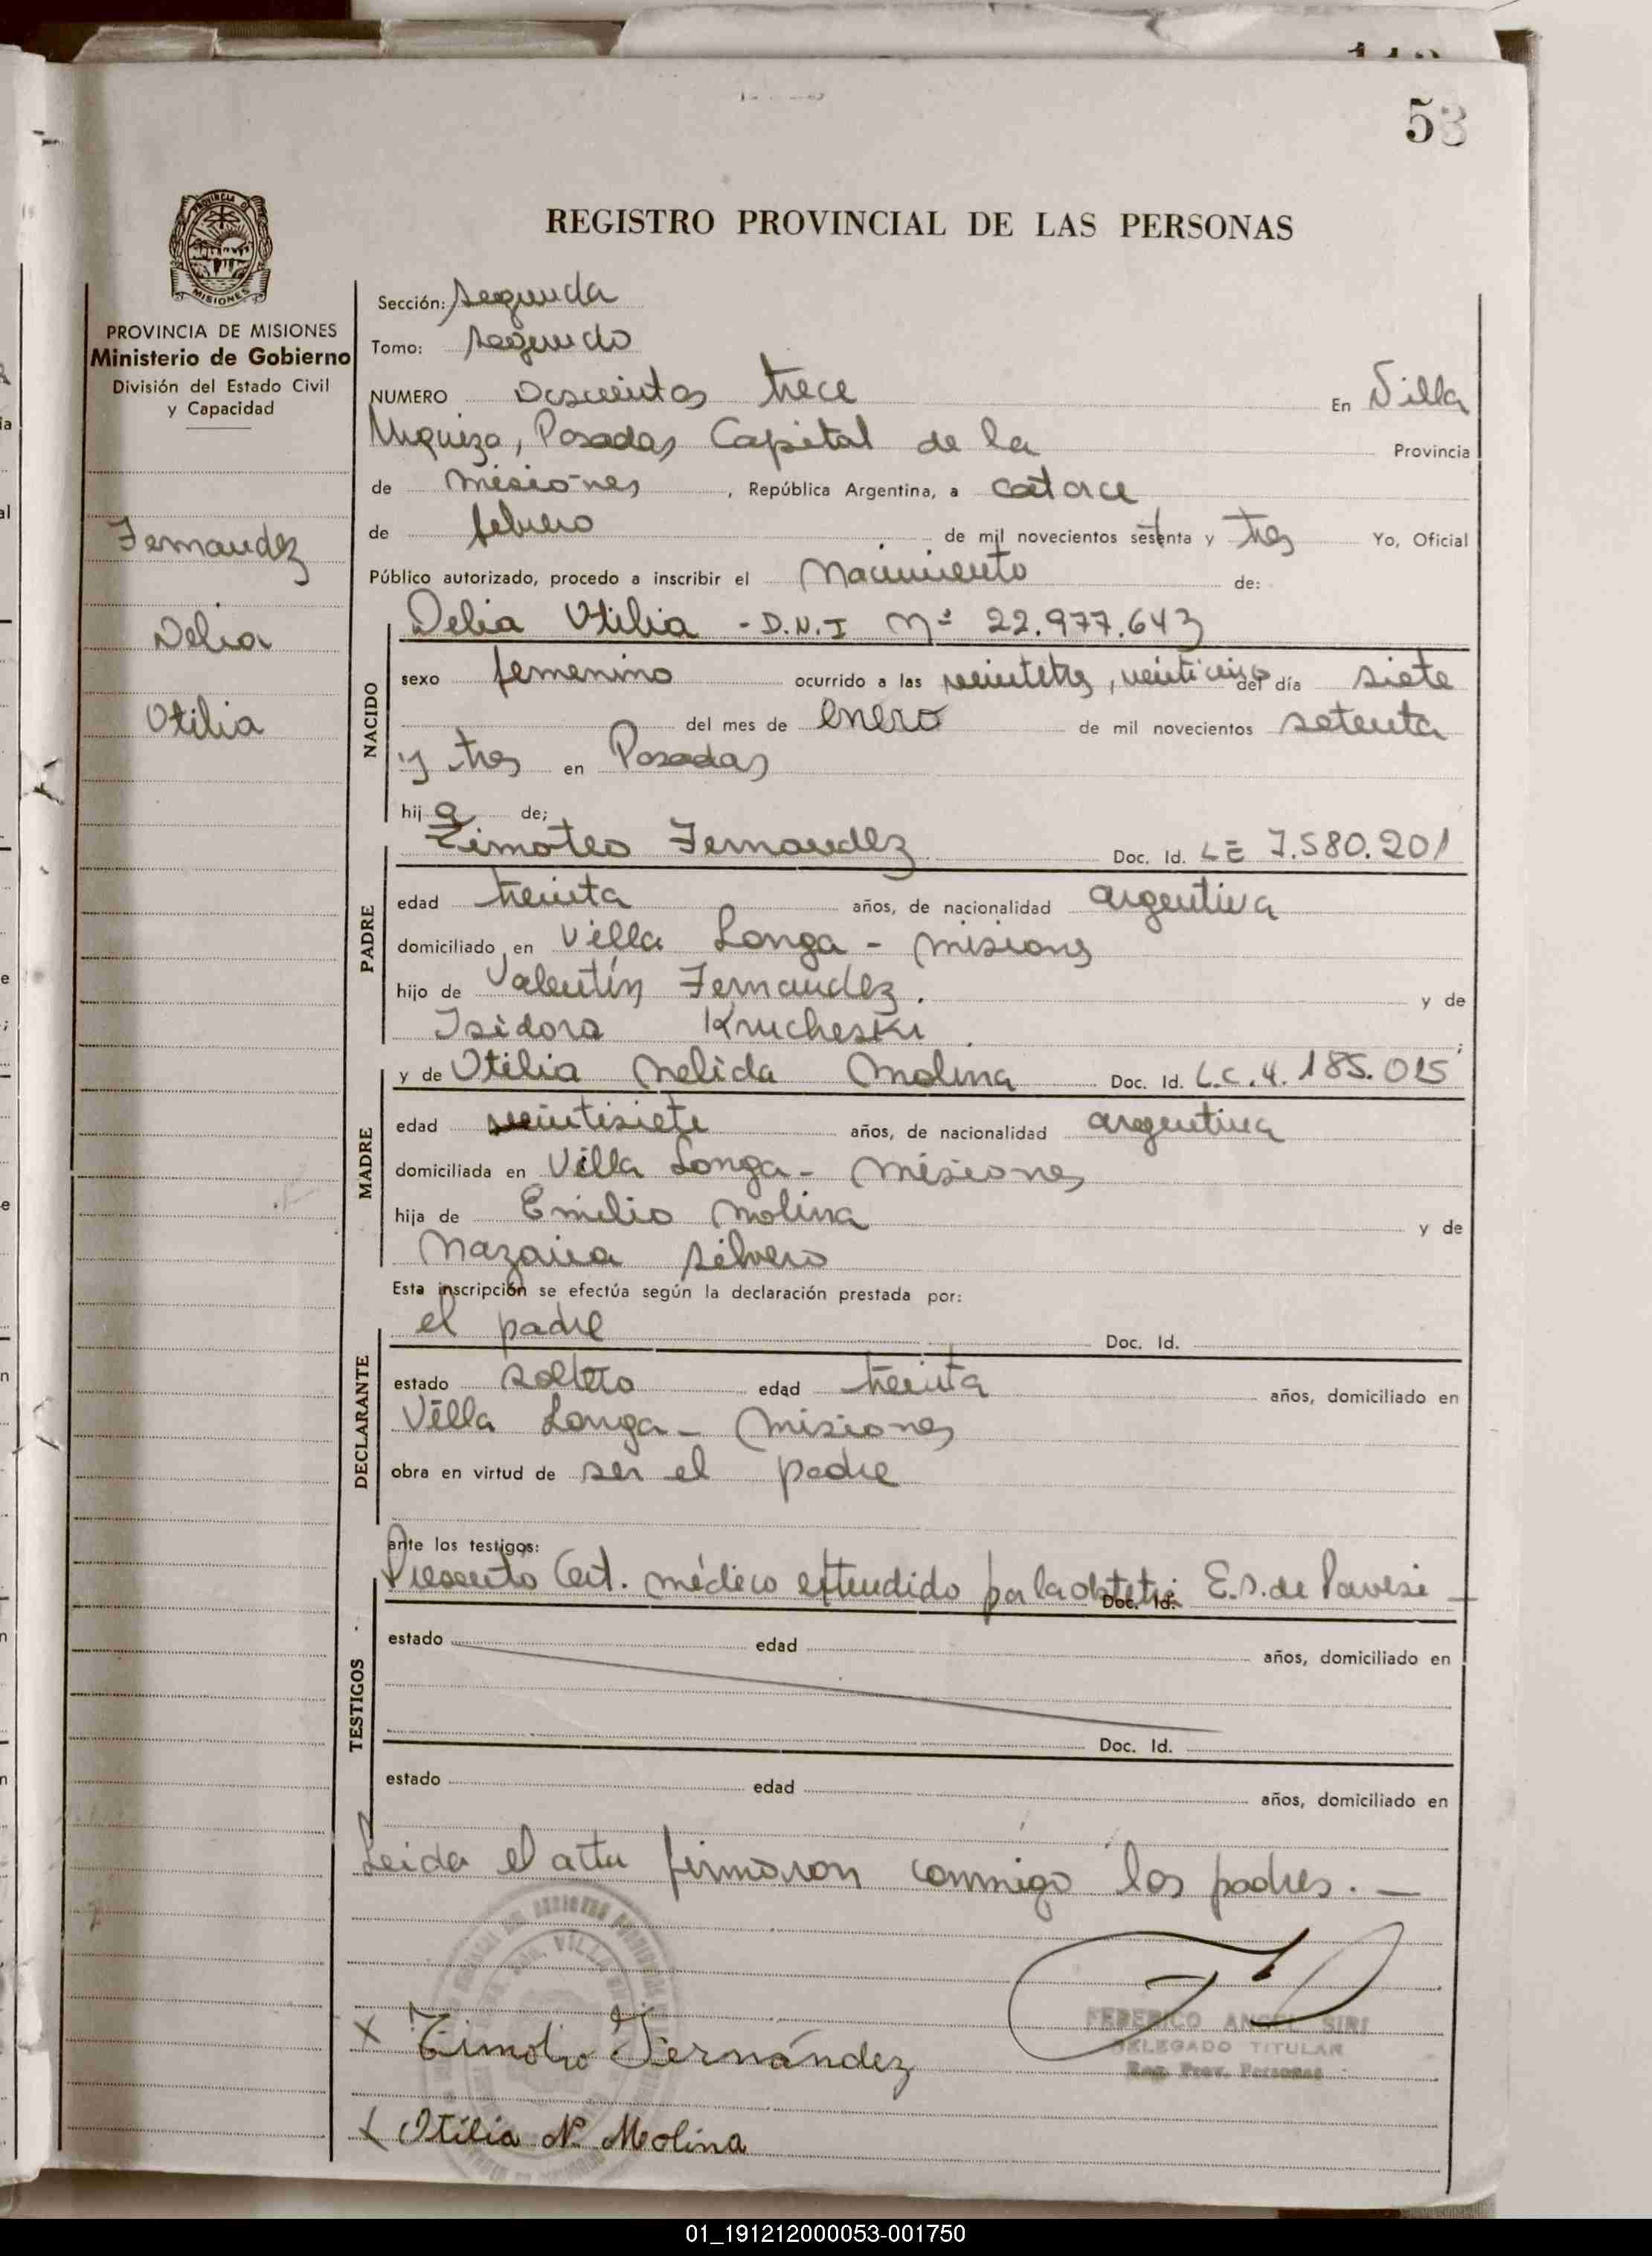 53
REGISTRO PROVINCIAL DE LAS PERSONAS
PROVINCIA DE MISIONES
Ministerio de Gobierno
División del Estado Civil
y Capacidad
Fernandez
Delia
Otilia
Sección: segunda
Tomo: segundo
NUMERO Doscientos trece En Villa
Urquiza, Posadas Capital de la Provincia
de Misiones, República Argentina, a catorce
de febrero de mil novecientos setenta y tres Yo, Oficial
Público autorizado, procedo a inscribir el Nacimiento de:
Delia Otilia - D.N.I Nº 22.977.643
NACIDO
sexo femenino ocurrido a las veintitres, veinticinco del día siete
del mes de enero de mil novecientos setenta
y tres en Posadas
hija de;
Timoteo Fernandez Doc. Id. LE 7.580.201
PADRE
edad treinta años, de nacionalidad argentina
domiciliado en Villa Longa - Misiones
hijo de Valentín Fernandez. y de
Isidora Krucheski.;
y de Otilia Nelida Molina Doc. Id. L.C.4.185.015
MADRE
edad veintisiete años, de nacionalidad argentina
domiciliada en Villa Longa - Misiones
hija de Emilio Molina y de
Nazaria Silvero
Esta inscripción se efectúa según la declaración prestada por:
el padre Doc. Id.
DECLARANTE
estado soltero edad treinta años, domiciliado en
Villa Longa - Misiones
obra en virtud de ser el padre
ante los testigos:
Presento Cert. médico extendido por la obstetri E.S. de Pavesi
Doc. Id.
TESTIGOS
estado edad años, domiciliado en
Doc. Id.
estado edad años, domiciliado en
Leida el acta firmaron conmigo los padres. —
FEDERICO ANGEL SIRI
DELEGADO TITULAR
Reg. Prov. Personas
X Timoteo Fernández
X Otilia N. Molina
01_191212000053-001750